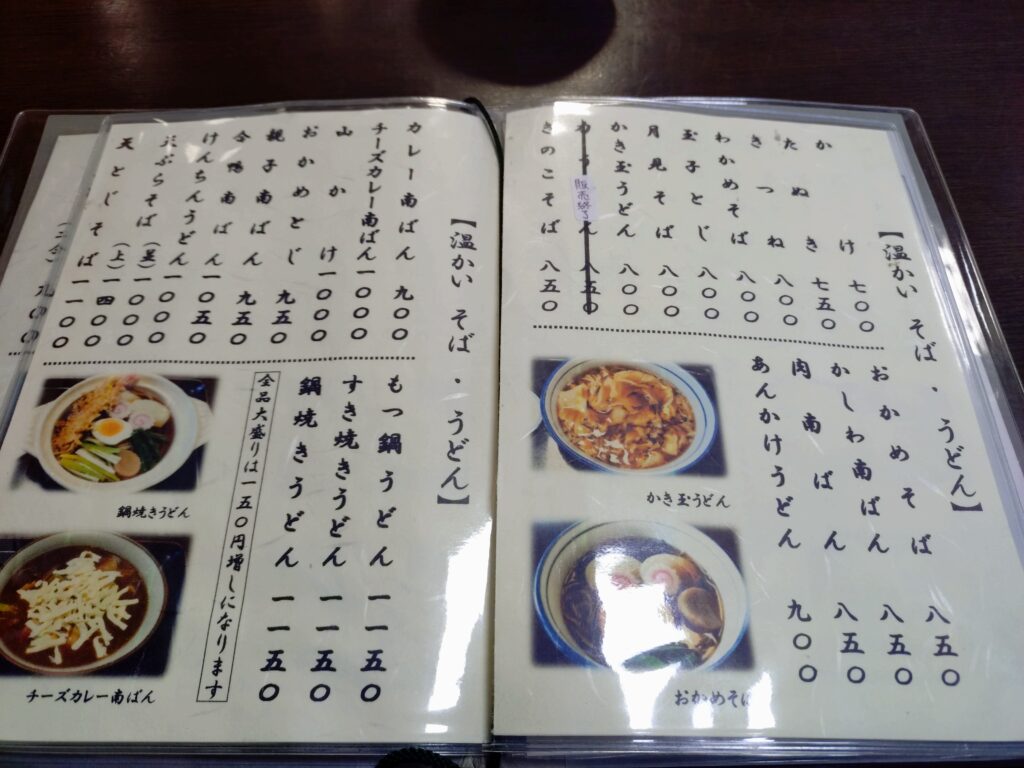 【温かい そば・うどん】
かけ 七〇〇
たぬき 七五〇
きつね 八〇〇
わかめそば 八〇〇
玉子とじ 八〇〇
月見そば 八〇〇
かき玉うどん 八〇〇
販売終了
八五〇
きのこそば 八五〇
おかめそば 八五〇
かしわ南ばん 八五〇
肉南ばん 八五〇
あんかけうどん 九〇〇
かき玉うどん
おかめそば
【温かい そば・うどん】
カレー南ばん 九〇〇
チーズカレー南ばん 一〇〇〇
山かけ 一〇〇〇
おかめとじ 九五〇
親子南ばん 九五〇
合鴨南ばん 一〇五〇
けんちんうどん 一〇〇〇
天ぷらそば (並) 一〇〇〇
(上) 一四〇〇
天とじそば 一一〇〇
もつ鍋うどん 一一五〇
すき焼きうどん 一一五〇
鍋焼きうどん 一一五〇
全品大盛りは一五〇円増しになります
鍋焼きうどん
チーズカレー南ばん